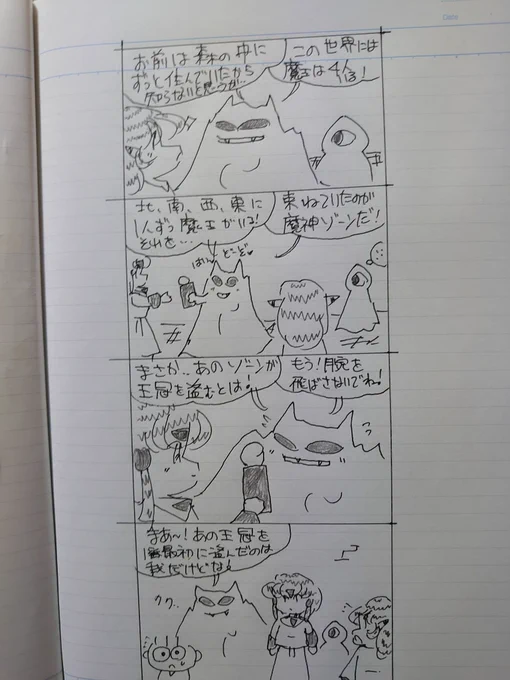 この世界には
魔王は4人居る！
お前は森の中に
ずっと住んでいたから
知らないと思うが…
東ねていたのが
魔神ゾーンだ！
北、南、西、東に
1人ずつ魔王がいる！
それを…
はい♥
どーぞ♥
もう！腕を
飛ばさないでね！
まさか‥あのゾーンが
王冠を盗むとは！
まあ〜！あの王冠を
最初に盗んだのは
我だけどな！
クク‥
Date